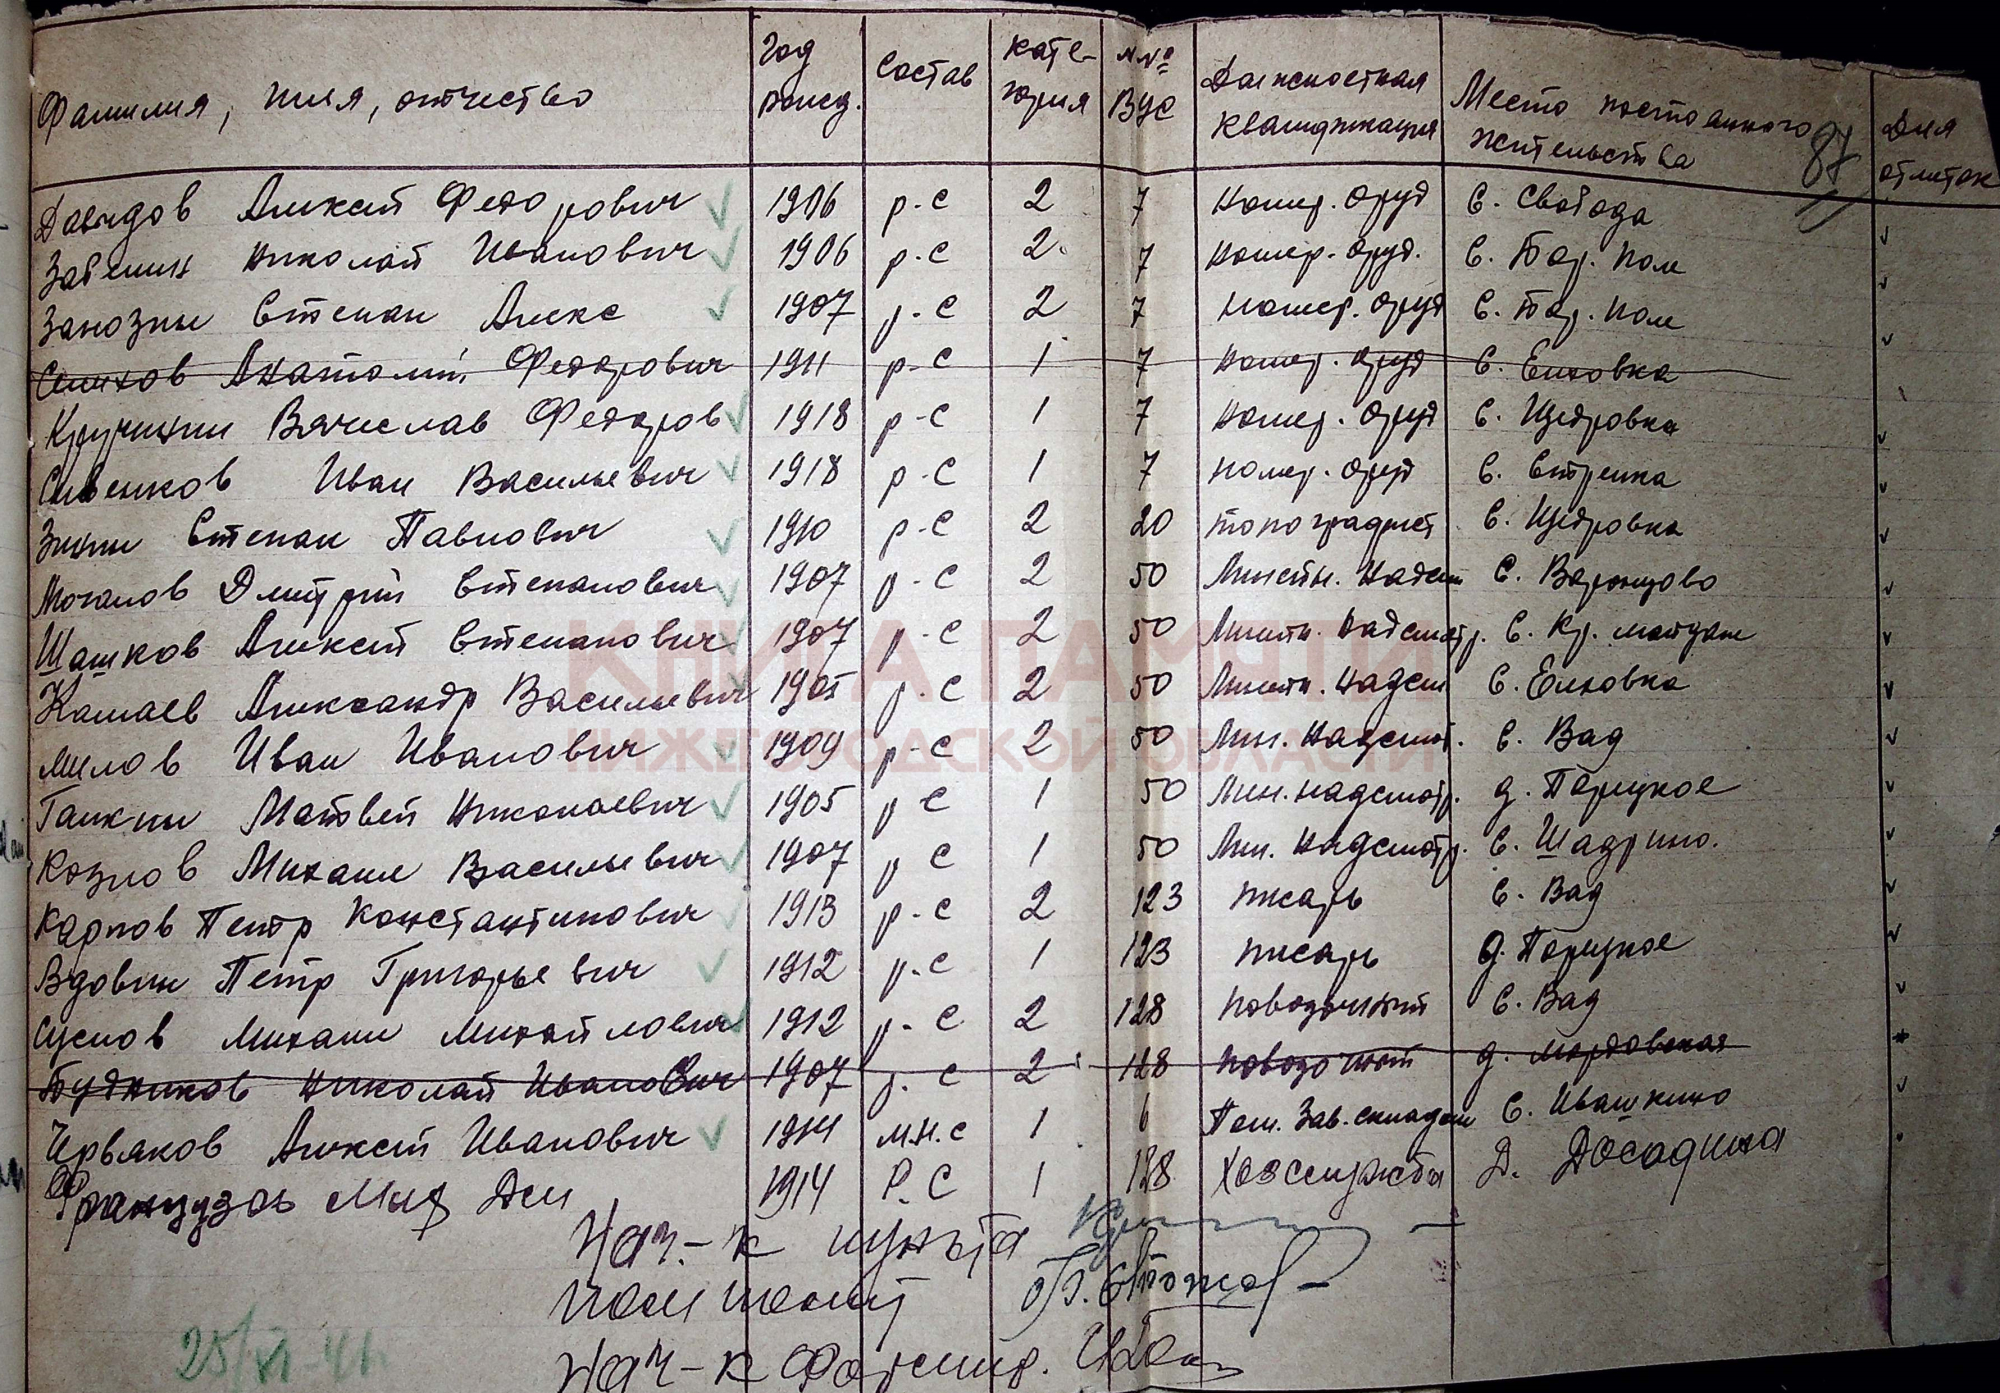 Фамилия, имя, отчество Год рожд. Состав Категория №№ ВУС Должностная квалификация Место постоянного жительства Для отметок
87
Давыдов Алексей Федорович 1906 р.с 2 7 Номер. оруд С. Свобода
Забелин Николай Иванович 1906 р.с 2 7 Номер. оруд. С. Бор. Пол
Занозин Степан Алекс 1907 р.с 2 7 номер. оруд С. Бор. Пол
Анатолий Федорович 1911 р-с 1 7 номер. оруд С. Елховка
Кручинин Вячеслав Федоров 1918 р-с 1 7 Номер. оруд С. Щедровка
Иван Васильевич 1918 р.с 1 7 номер. оруд С. Стрелка
Зинин Степан Павлович 1910 р-с 2 20 топографист С. Щедровка
Мочалов Дмитрий Степанович 1907 р-с 2 50 Линейн. Надсм С. Воронцово
Шашков Алексей Степанович 1907 р-с 2 50 Линейн. Надсмотр. С. Кр. майдан
Александр Васильевич 1905 р.с 2 50 Линейн. Надсм С. Елховка
Милов Иван Иванович 1909 р-с 2 50 Лин. Надсмот. С. Вад
Галкин Матвей Николаевич 1905 р с 1 50 Лин. надсмотр. д. Порецкое
Козлов Михаил Васильевич 1907 р с 1 50 Лин. Надсмотр. С. Шадрино.
Карпов Петр Константинович 1913 р-с 2 123 писарь С. Вад
Вдовин Петр Григорьевич 1912 р.с 1 123 писарь д. Порецкое
Суслов Михаил Михайлович 1912 р-с 2 128 повозочный С. Вад
Будников Николай Иванович 1907 р.с 2 128 повозочный д. Мордовская
Червяков Алексей Иванович 1914 м.н.с 1 6 Пом. Зав. складом С. Ивашкино
Французов Мих Дм 1914 Р.С 1 128 Хозслужбы Д. Досадина
Нач-к пункта
Нач-к
25/VI-41г.
КНИГА ПАМЯТИ
НИЖЕГОРОДСКОЙ ОБЛАСТИ